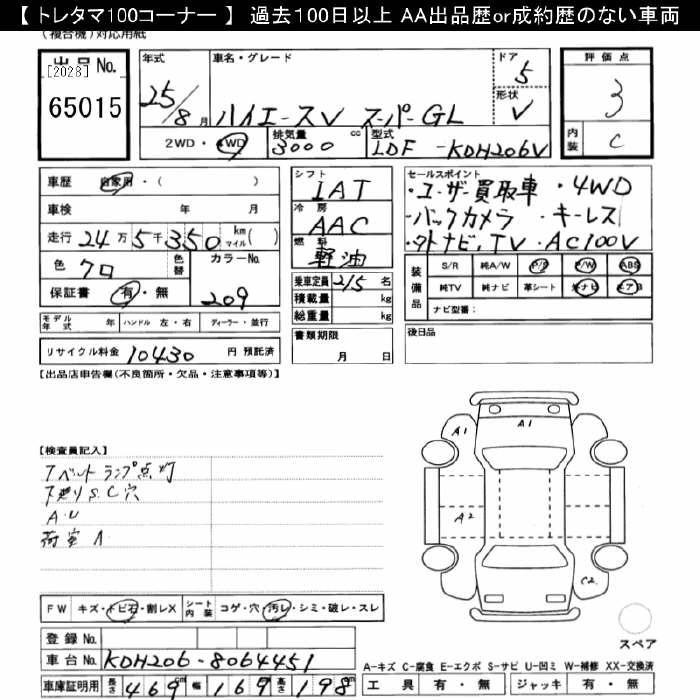 【 トレタマ100コーナー 】 過去100日以上 AA出品歴or成約歴のない車両
(複合機)対応用紙
出品 No.
[2028]
65015
年式
25/8月
車名・グレード
ハイエースV スーパーGL
ドア
5
形状
V
評価点
3
内装
C
2WD・4WD
排気量
3000 cc
型式
LDF -KDH206V
車歴 自家用・( )
車検 年 月
走行 24万5千350 km マイル( )
色 クロ
色替
カラーNo.
209
保証書 有・無
シフト
IAT
冷房
AAC
燃料
軽油
乗車定員 2/5 名
積載量 kg
総重量 kg
セールスポイント
・ユーザー買取車 ・4WD
・バックカメラ ・キーレス
・外ナビ、TV ・AC100V
装備品
S/R 純A/W P/S P/W ABS
純TV 純ナビ 革シート 社ナビ エアB
ナビ型番:
モデル年式 年 ハンドル 左・右 ディーラー・並行
リサイクル料金 10430 円 預託済
書類期限
月 日
後日品
【出品店申告欄(不良箇所・欠品・注意事項等)】
【検査員記入】
下廻りS.C穴
A.U
荷室
A1
A1
A2
C2
FW キズ・トビ石・割レX
シート内装 コゲ・穴・汚レ・シミ・破レ・スレ
登録 No.
車台 No. KDH206-8064451
車庫証明用 長さ 469cm 幅 169 高さ 198cm
スペア
A-キズ C-腐食 E-エクボ S-サビ U-凹ミ W-補修 XX-交換済
工具 有・無 ジャッキ 有・無